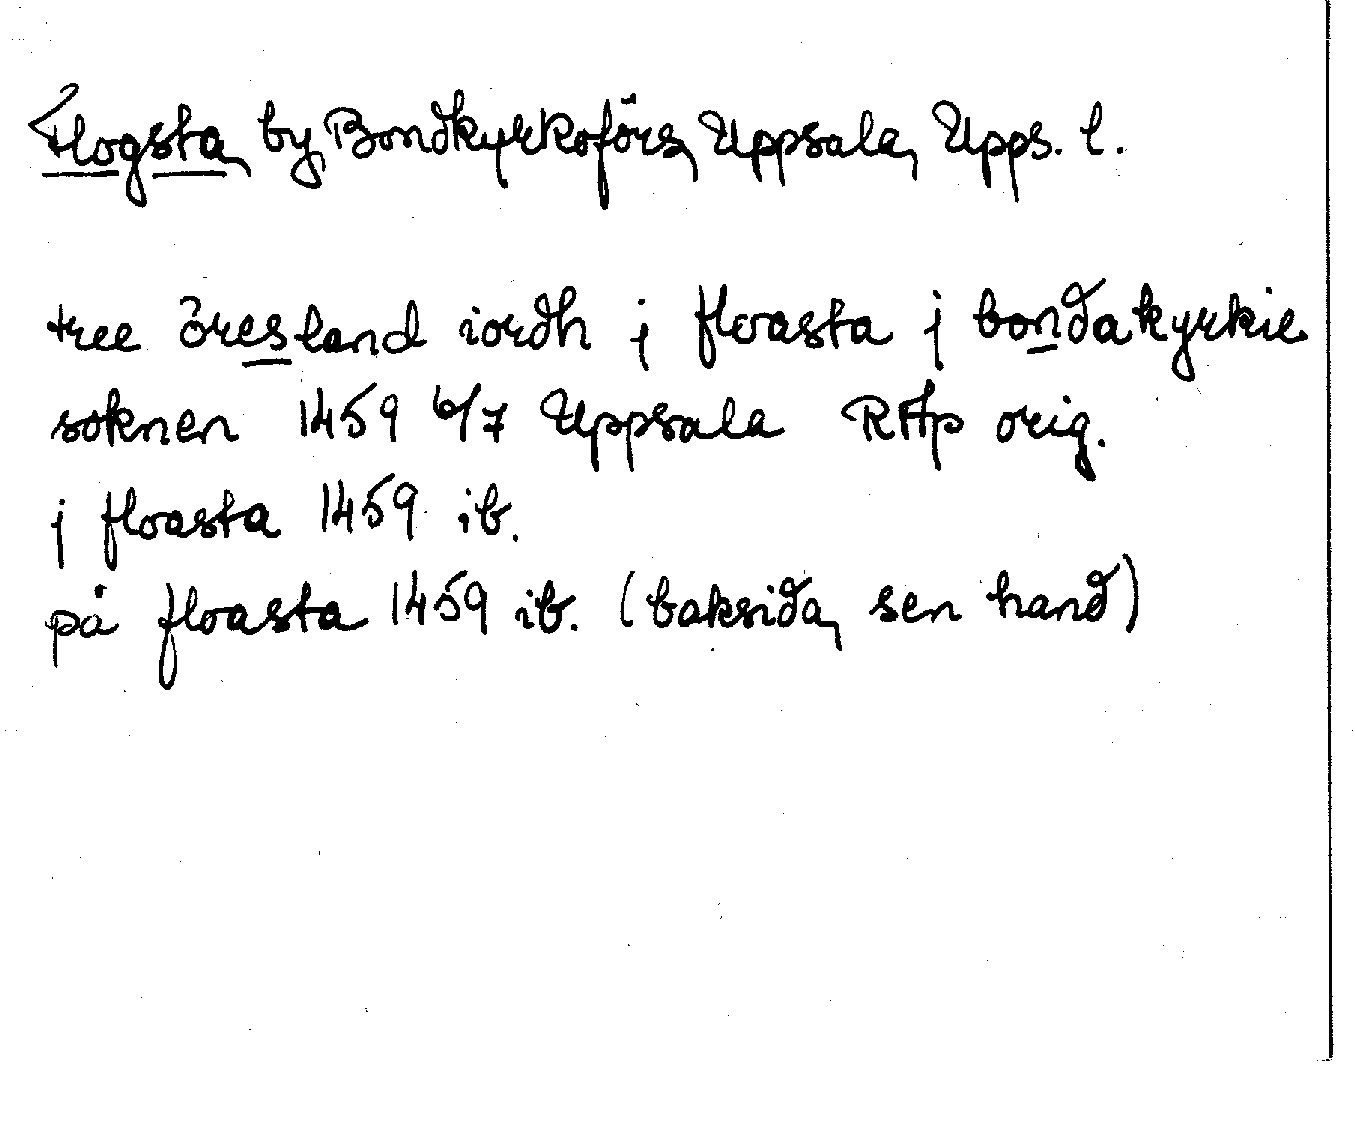 Flogsta, by, Bondkyrkoförs, Uppsala, Upps. l.
tree öresland iordh j floasta j bondakyrkie
soknen 1459 6/7 Uppsala RAp orig.
j floasta 1459 ib.
på floasta 1459 ib. (baksida, sen hand)